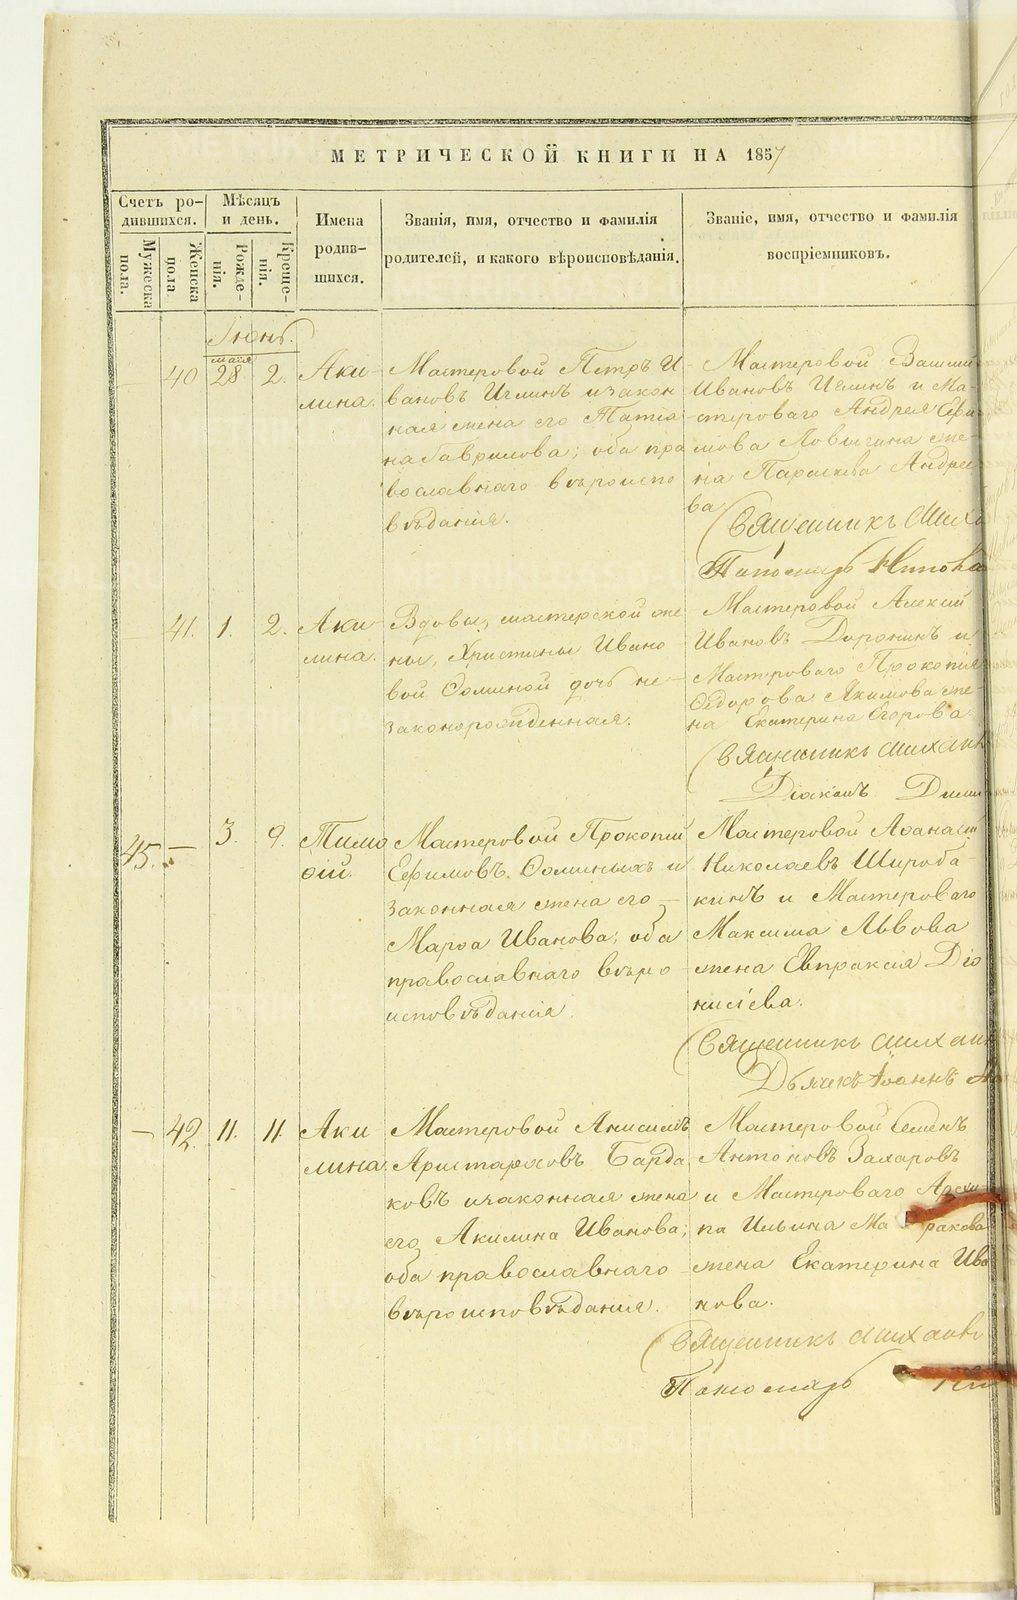 МЕТРИЧЕСКОЙ КНИГИ НА 1857
Счетъ ро-
дившихся.
Мужеска
пола.
Женска
пола.
Мѣсяцъ
и день.
Рожде-
нія.
Креще-
нія.
Имена
родив-
шихся.
Званія, имя, отчество и фамилія
родителей, и какого вѣроисповѣданія.
Званіе, имя, отчество и фамилія
воспріемниковъ.
Іюнь.
маія
40 28 2. Аки-
лина.
Мастеровой Петръ И-
вановъ и закон
ная жена его Татіа
на Гаврилова; оба пра
вославнаго вѣроиспо
вѣданія.
Мастеровой
Ивановъ и Ма-
стероваго Андрея Ефи
мова же-
на Параскева Андрее
ва.
Священникъ Миха
Пономарь
41. 1. 2. Аки-
лина.
Вдовы, мастерской же
ны, Христины Ивано
вой Ѳоминой дочь не-
законорожденная.
Мастеровой Алексій
Ивановъ Доронинъ и
Мастероваго Прокопія
Ѳедорова Акимова же-
на Екатерина Егорова.
Священникъ Михаи
Діаконъ Дими
45. — 3. 9. Тимо
ѳій.
Мастеровой Прокопій
Ефимовъ Ѳоминыхъ и
законная жена его —
Марѳа Иванова; оба
православнаго вѣро
исповѣданія.
Мастеровой Аѳанасій
Николаевъ Широба-
кинъ и Мастероваго
Максима Львова
жена Евпраксія Діо
нисіева.
Священникъ Михаи
Дьячекъ Іоаннъ
— 42. 11. 11. Аки
лина.
Мастеровой Анисимъ
Аристарховъ Барда
ковъ и законная жена
его Акилина Иванова;
оба православнаго
вѣроисповѣданія.
Мастеровой Семенъ
Антоновъ Захаровъ
и Мастероваго Архи-
па Ильина
жена Екатерина Ива
нова.
Священникъ Михаи
Пономарь